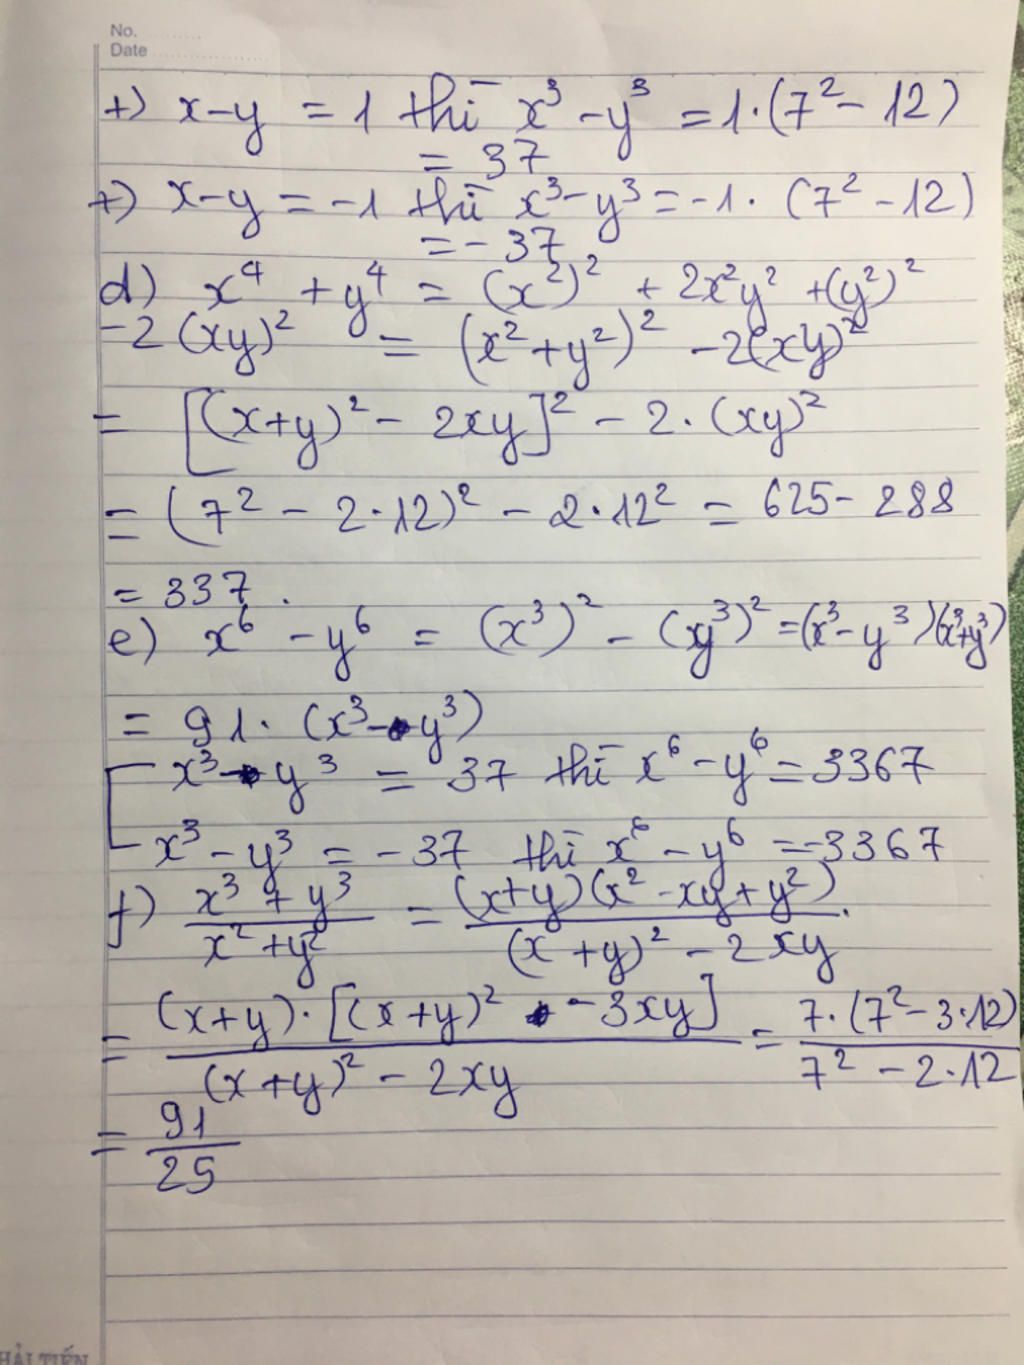 No.
Date
+) x-y = 1 thì x³ - y³ = 1·(7² - 12)
= 37
+) x-y = -1 thì x³ - y³ = -1· (7² - 12)
= - 37
d) x⁴ + y⁴ = (x²)² + 2x²y² + (y²)²
-2 (xy)² = (x² + y²)² - 2(xy)²
= [(x+y)² - 2xy]² - 2· (xy)²
= (7² - 2·12)² - 2·12² = 625 - 288
= 337.
e) x⁶ - y⁶ = (x³)² - (y³)² = (x³ - y³)(x³+y³)
= 91· (x³ - y³)
x³ - y³ = 37 thì x⁶ - y⁶ = 3367
x³ - y³ = -37 thì x⁶ - y⁶ = -3367
f) (x³ + y³)/(x² + y²) = ((x+y)(x² - xy + y²))/((x+y)² - 2xy).
= ((x+y)·[(x+y)² - 3xy])/((x+y)² - 2xy) = (7·(7² - 3·12))/(7² - 2·12)
= 91/25
HẢI TIẾN